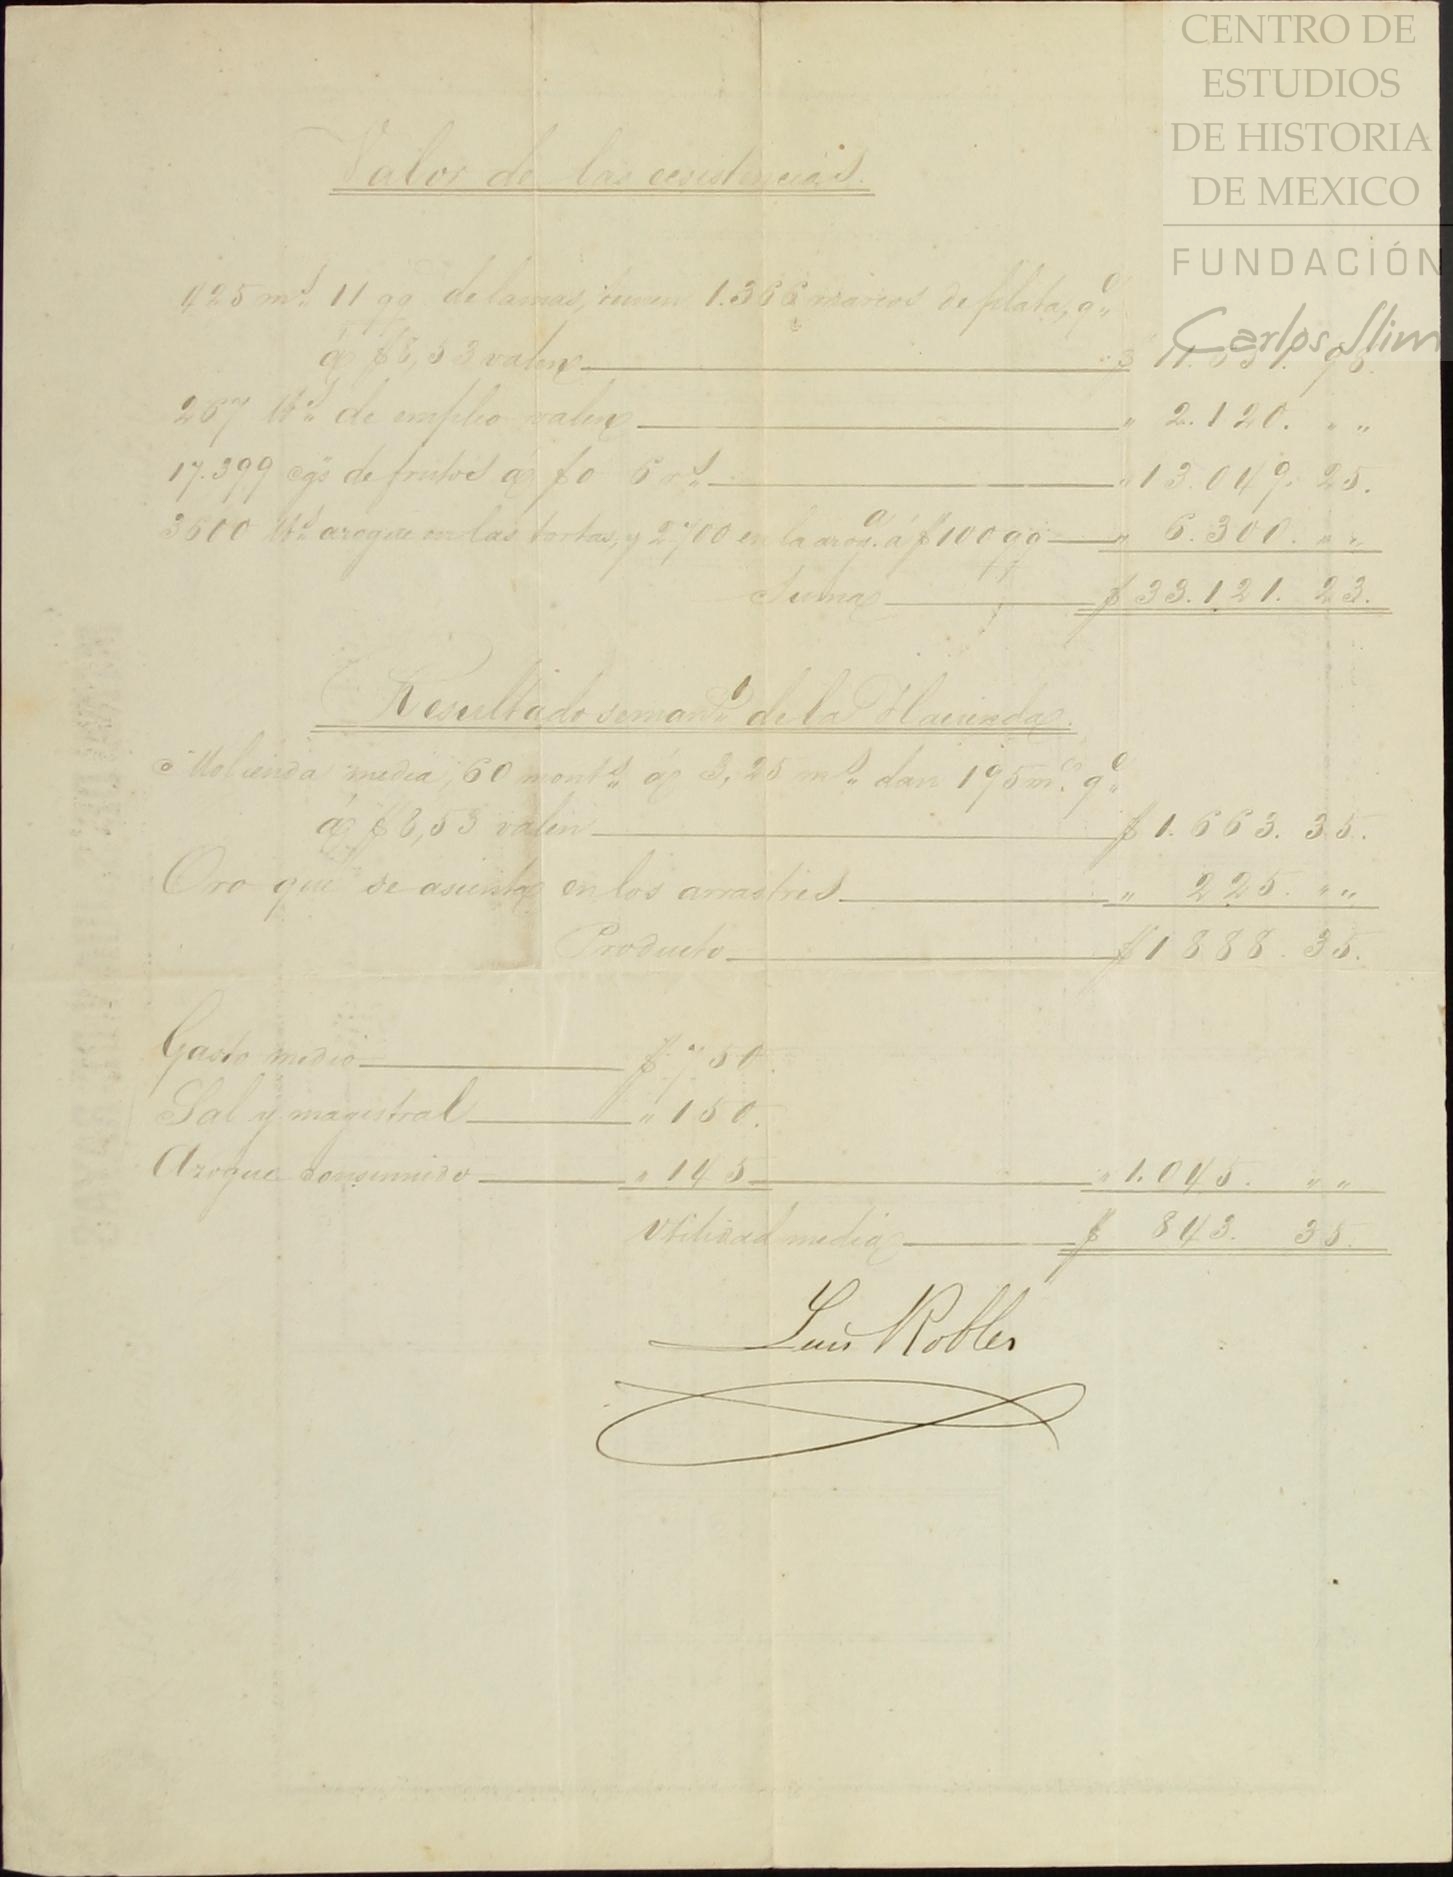 CENTRO DE
ESTUDIOS
DE HISTORIA
DE MEXICO
FUNDACIÓN
Carlos Slim
Valor de las ecsistencias.
425 ms. 11 qq. de lamas, tienen 1.366 marcos de plata, qe.
á $8,53 valen $ 11.651. 98.
267 lbs. de emplio valen " 2.120. " "
17.399 cgs de frutos á $0 6 rs. " 13.049. 25.
3600 lbs azogue en las tortas, y 2700 en la azoga. á $100 qq " 6.300. " "
Suma $ 33.121. 23.
Resultado semanl. de la Hacienda.
Molienda media, 60 monts. á 3,25 ms. dan 195 mcs. qe.
á $8,53 valen $ 1.663. 35.
Oro que se asienta en los arrastres " 225. " "
Producto $ 1888. 35.
Gasto medio $ 750.
Sal y magistral " 150.
Azogue consumido " 145 " 1.045. " "
Utilidad media $ 843. 35.
Luis Robles